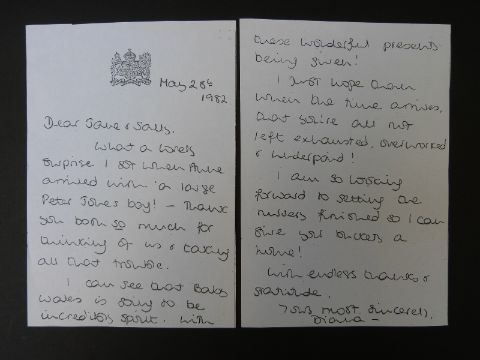 May 28th
1982
Dear Jane & Sally,
What a lovely
surprise I got when Anne
arrived with a large
Peter Jones box! - Thank
you both so much for
thinking of us & taking
all that trouble.
I can see that Baby
Wales is going to be
incredibly spoilt. With
these wonderful presents
being given!
I just hope that
when the time arrives,
that you're all not
left exhausted, overworked
& underpaid!
I am so looking
forward to getting the
nursery finished so I can
give you buckets a
With endless thanks &
gratitude.
Yours most sincerely,
Diana -